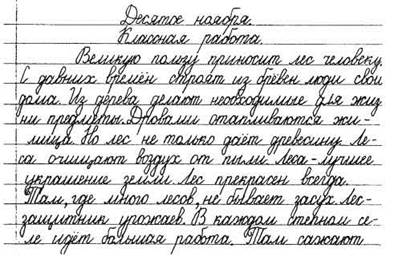 Десятое ноября.
Классная работа.
Великую пользу приносит лес человеку.
С давних времён строят из брёвен люди свои
дома. Из дерева делают необходимые для жиз
ни предметы. Дровами отапливаются жи-
лища. Но лес не только даёт древесину. Ле-
са очищают воздух от пыли. Леса - лучшее
украшение земли. Лес прекрасен всегда.
Там, где много лесов, не бывает засух. Лес-
защитник урожаев. В каждом степном се-
ле идёт большая работа. Там сажают